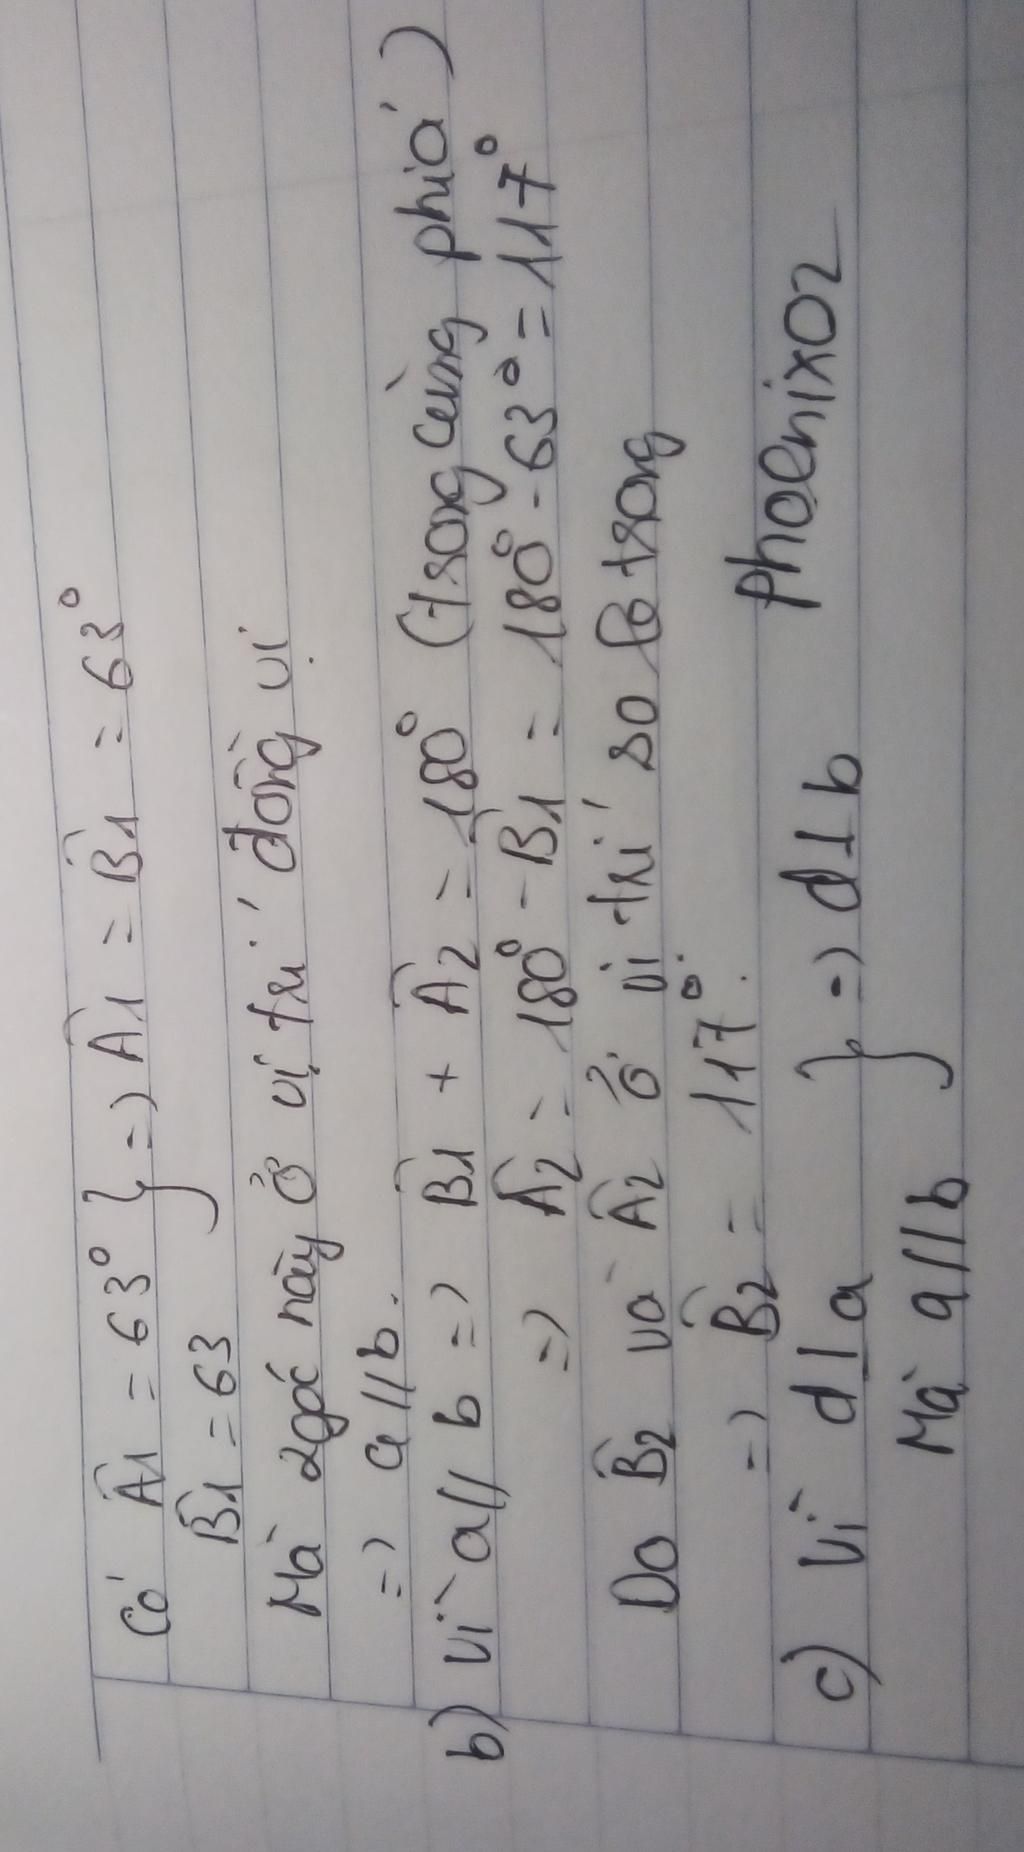 Có Â1 = 63° } => Â1 = B̂1 = 63°
B̂1 = 63
Mà 2góc này ở vị trí đồng vị
=> a//b.
b) Vì a// b => B̂1 + Â2 = 180° (trong cùng phía)
=> Â2 = 180° - B̂1 = 180° - 63° = 117°
Do B̂2 và Â2 ở vị trí so le trong
=> B̂2 = 117°.
c) Vì d⊥a } => d⊥b phoenixor
Mà a//b